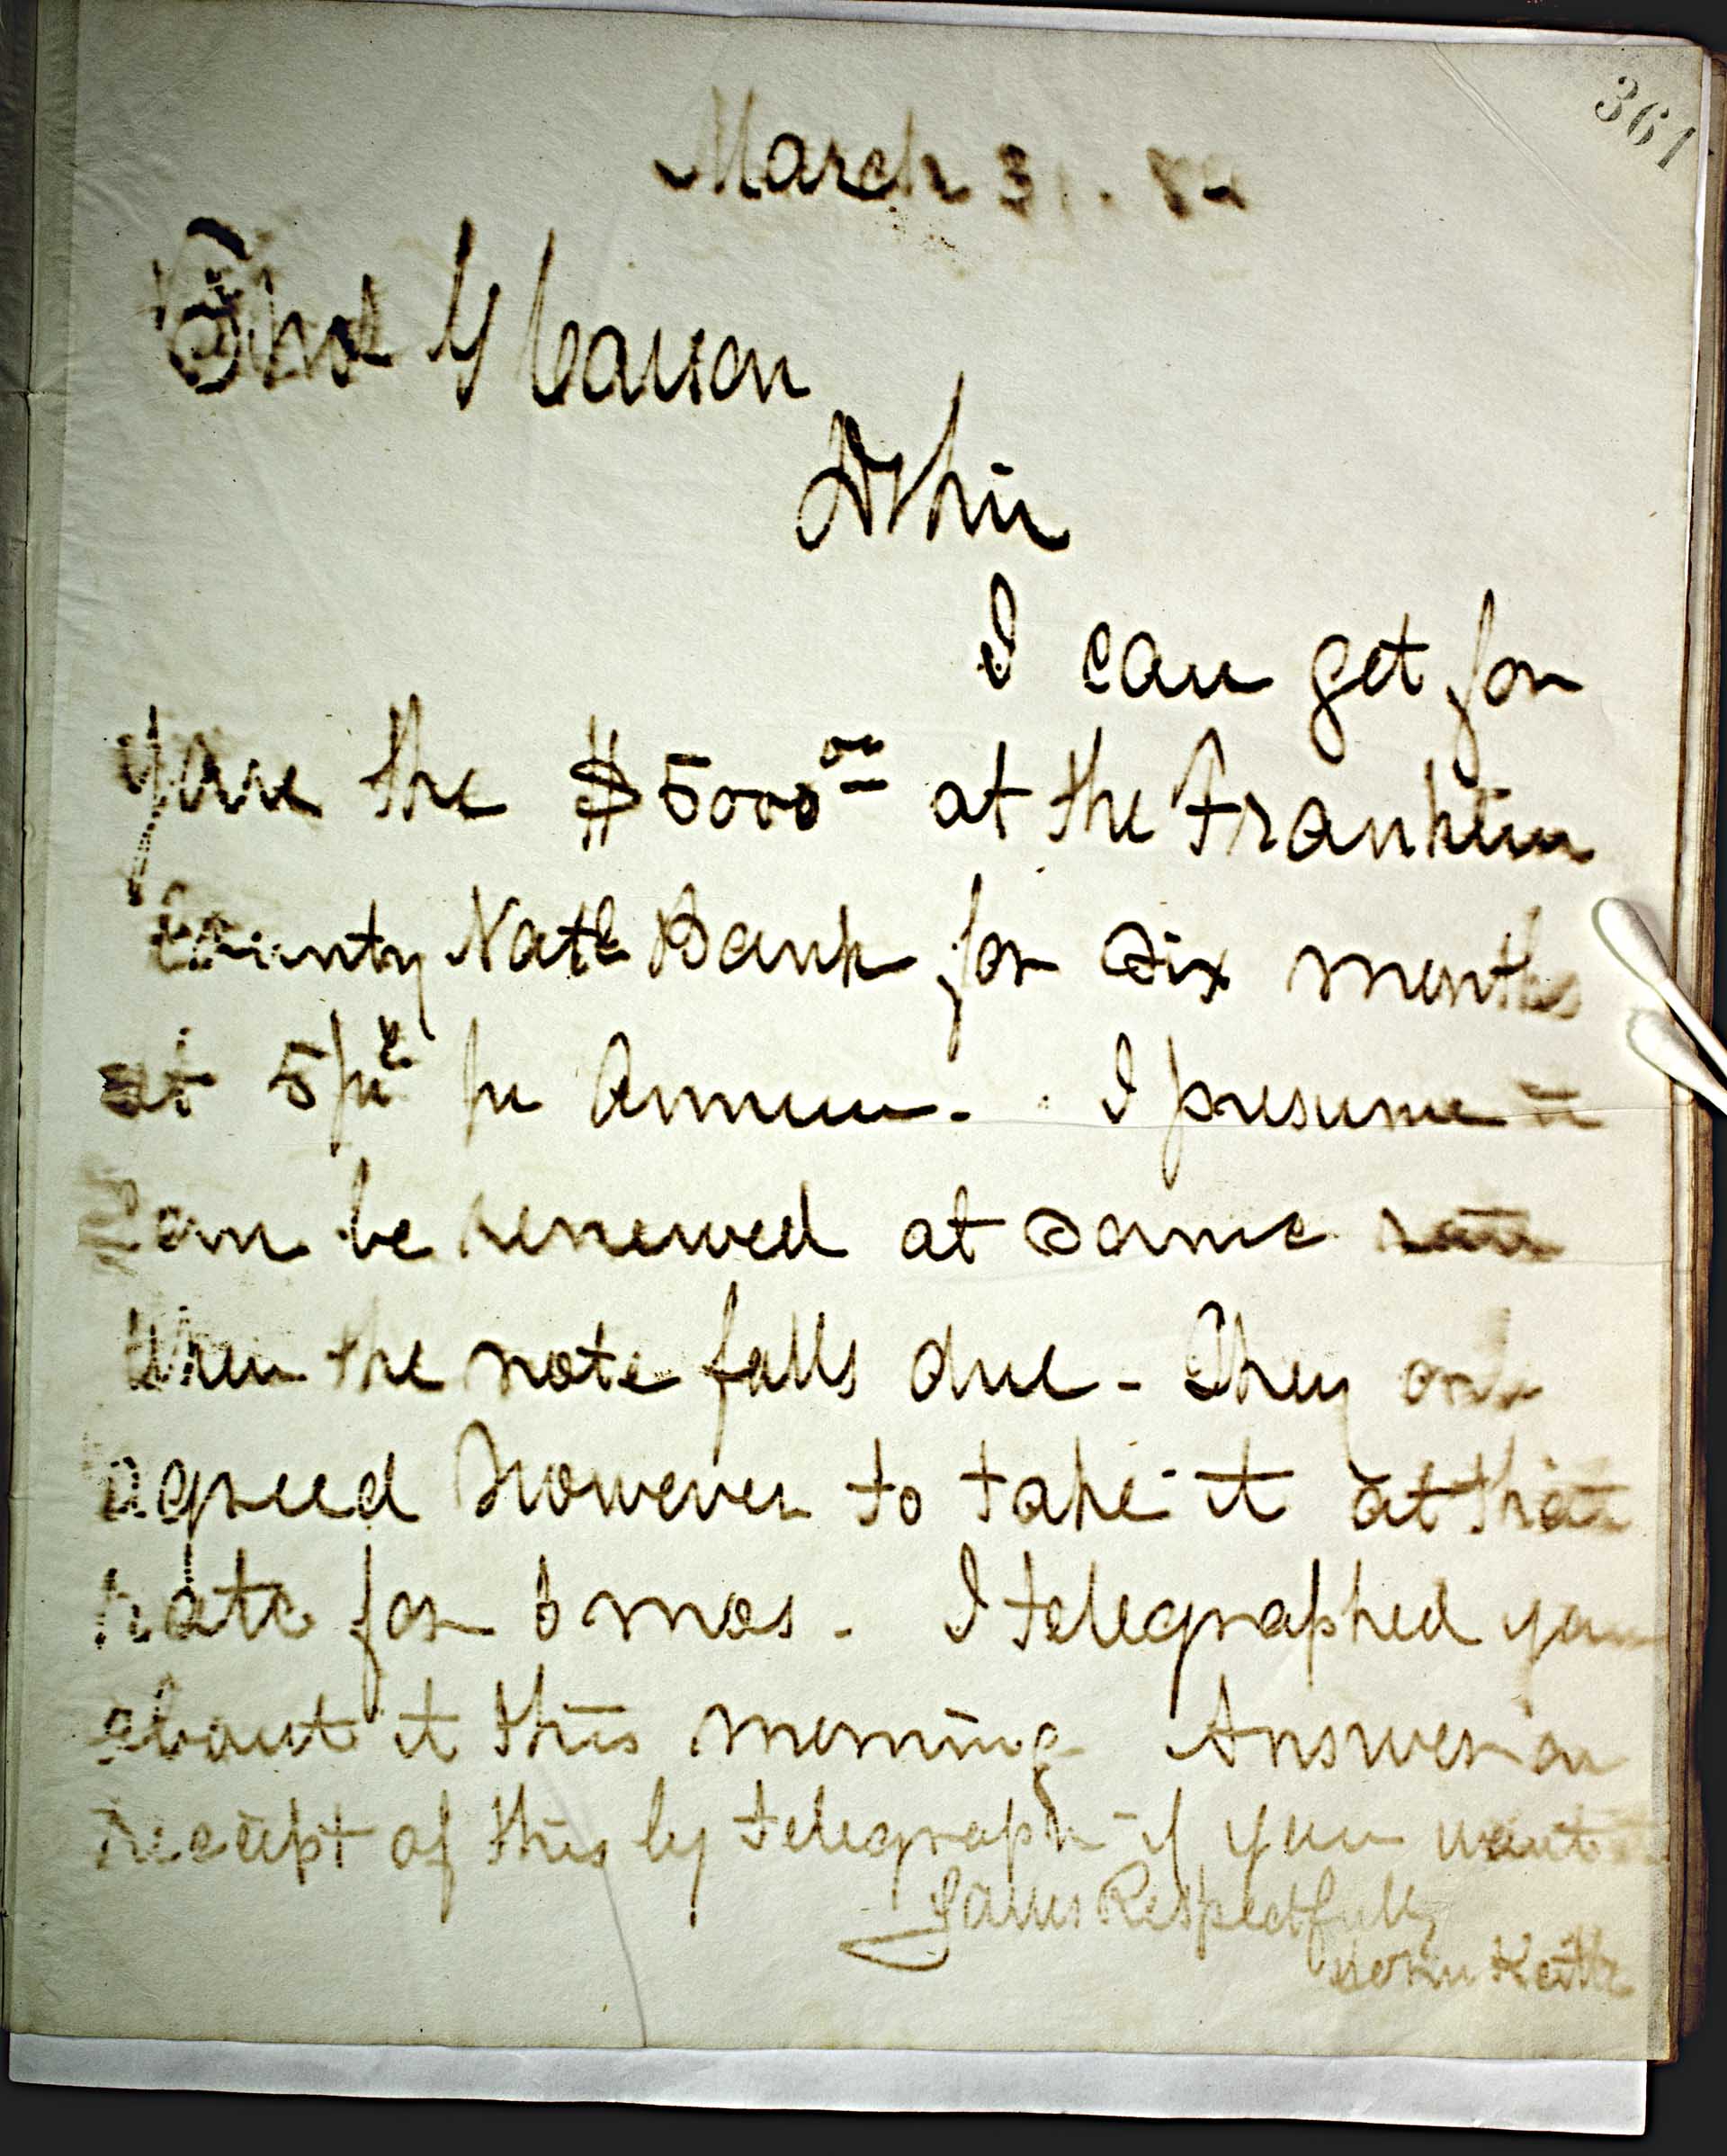 361
March 31. 84
Dr Sir
I can get for
you the $5000 00 at the Franklin
County Natl Bank for six months
at 5 pr ct pr Annum - I presume it
can be renewed at same rate
when the note falls due - They only
agreed however to take it at that
rate for 6 mos - I telegraphed you
about it this morning Answer on
receipt of this by telegraph if you want it
Yours Respectfully
John Keith